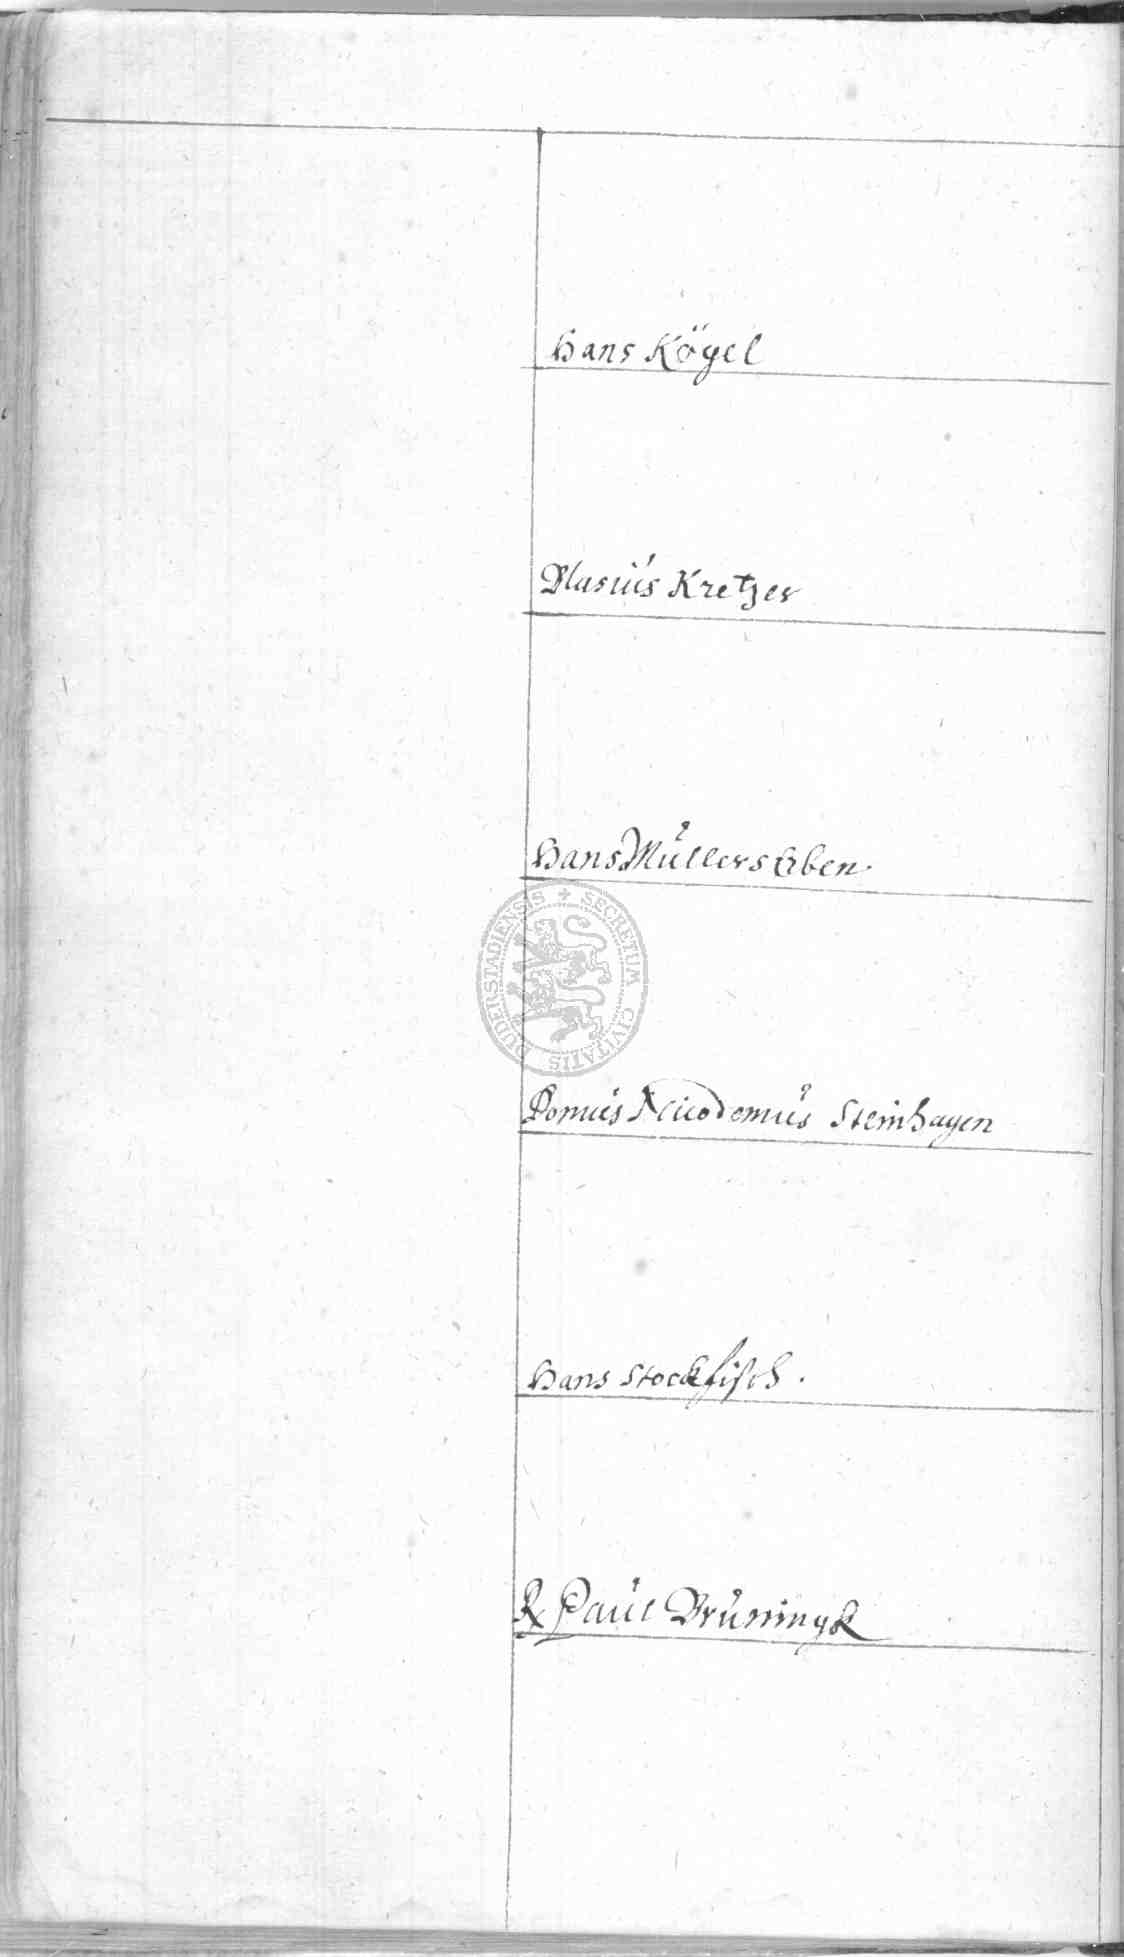 Hans Kögel
Blasius Kretzer
Hans Müllers Erben.
SECRETUM CIVITATIS DUDERSTADIENSIS
Domus Nicodemus Steinhagen
Hans Stockfisch.
Paul Brüningk